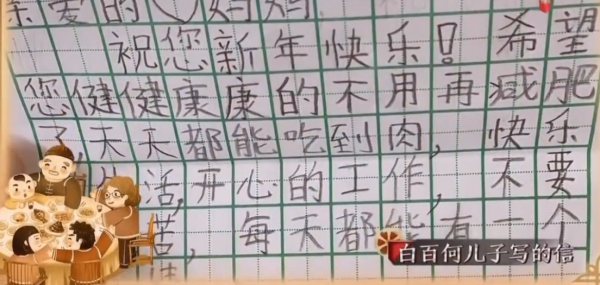 亲爱的妈妈
祝您新年快乐！希望
您健健康康的不用再减肥
了天天都能吃到肉，快乐
活，开心的工作，不要
苦，每天都能有一个
白百何儿子写的信